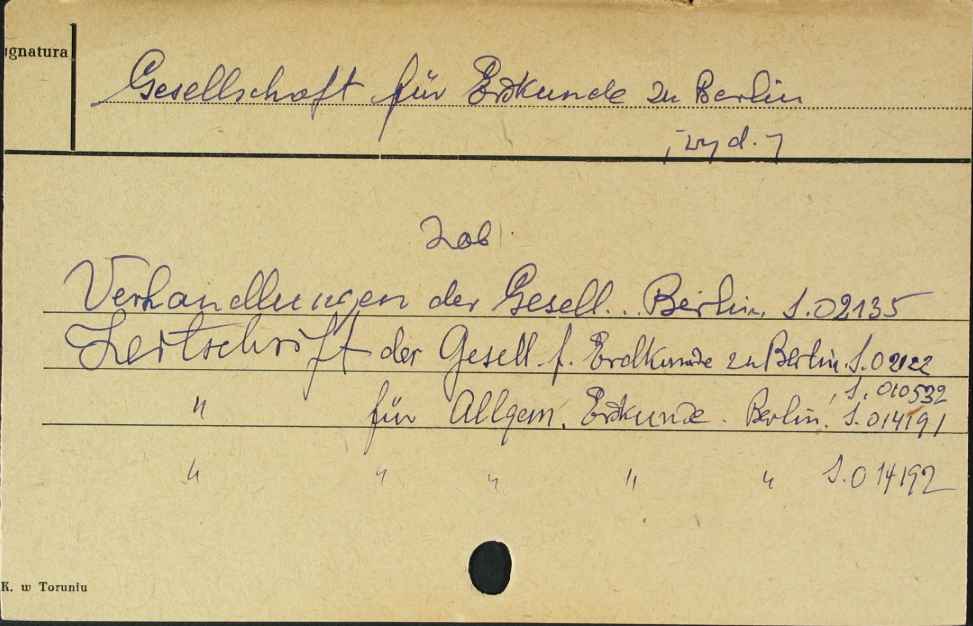 ignatura
Gesellschaft für Erdkunde zu Berlin
, wyd. ,
Zob
Verhandlungen der Gesell... Berlin. S.02135
Zeitschrift der Gesell. f. Erdkunde zu Berlin. S.02122
, S. 010532
" für Allgem. Erdkunde. Berlin. S.014191
" " " " " S.014192
K. w Toruniu